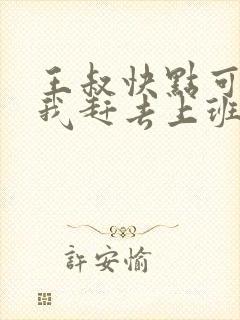 王叔快點可
我赶去上班
許安愉